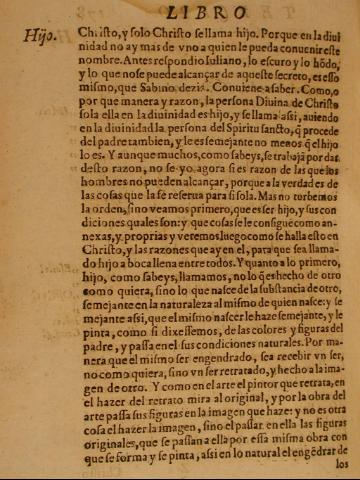 LIBRO
Hijo.
Christo, y solo Christo se llama hijo. Porque en la diui
nidad no ay mas de vno a quien le pueda conuenir este
nombre. Antes respondio Iuliano, lo escuro y lo hõdo,
y lo que no se puede alcançar de aqueste secreto, es esso
mismo, que Sabino dezia. Conuiene a saber. Como, o
por que manera y razon, la persona Diuina de Christo
sola ella en la diuinidad es hijo, y se llama assi, auiendo
en la diuinidad la persona del Spiritu sancto, q̃ procede
del padre tambien, y le es semejante no menos q̃ el hijo
lo es. Y aunque muchos, como sabeys, se trabajã por dar
desto razon, no se yo agora si es razon de las que los
hombres no pueden alcançar, porque a la verdad es de
las cosas que la fe reserua para si sola. Mas no turbemos
la orden, sino veamos primero, que es ser hijo, y sus con
diciones quales son: y que cosas le consiguẽ como an-
nexas, y proprias y veremos luego como se halla esto en
Christo, y las razones que ay en el, para que sea llama-
do hijo a boca llena entre todos. Y quanto a lo primero,
hijo, como sabeys, llamamos, no lo q̃ es hecho de otro
como quiera, sino lo que nasce de la substancia de otro,
semejante en la naturaleza al mismo de quien nasce: y se
mejante assi, que el mismo nascer le haze semejante, y le
pinta, como si dixessemos, de las colores y figuras del
padre, y passa en el sus condiciones naturales. Por ma-
nera que el mismo ser engendrado, sea recebir vn ser,
no como quiera, sino vn ser retratado, y hecho a la ima-
gen de otro. Y como en el arte el pintor que retrata, en
el hazer del retrato mira al original, y por la obra del
arte passa sus figuras en la imagen que haze: y no es otra
cosa el hazer la imagen, sino el passar en ella las figuras
originales, que se passan a ella por essa misma obra con
que se forma y se pinta, assi en lo natural el engẽdrar de
los